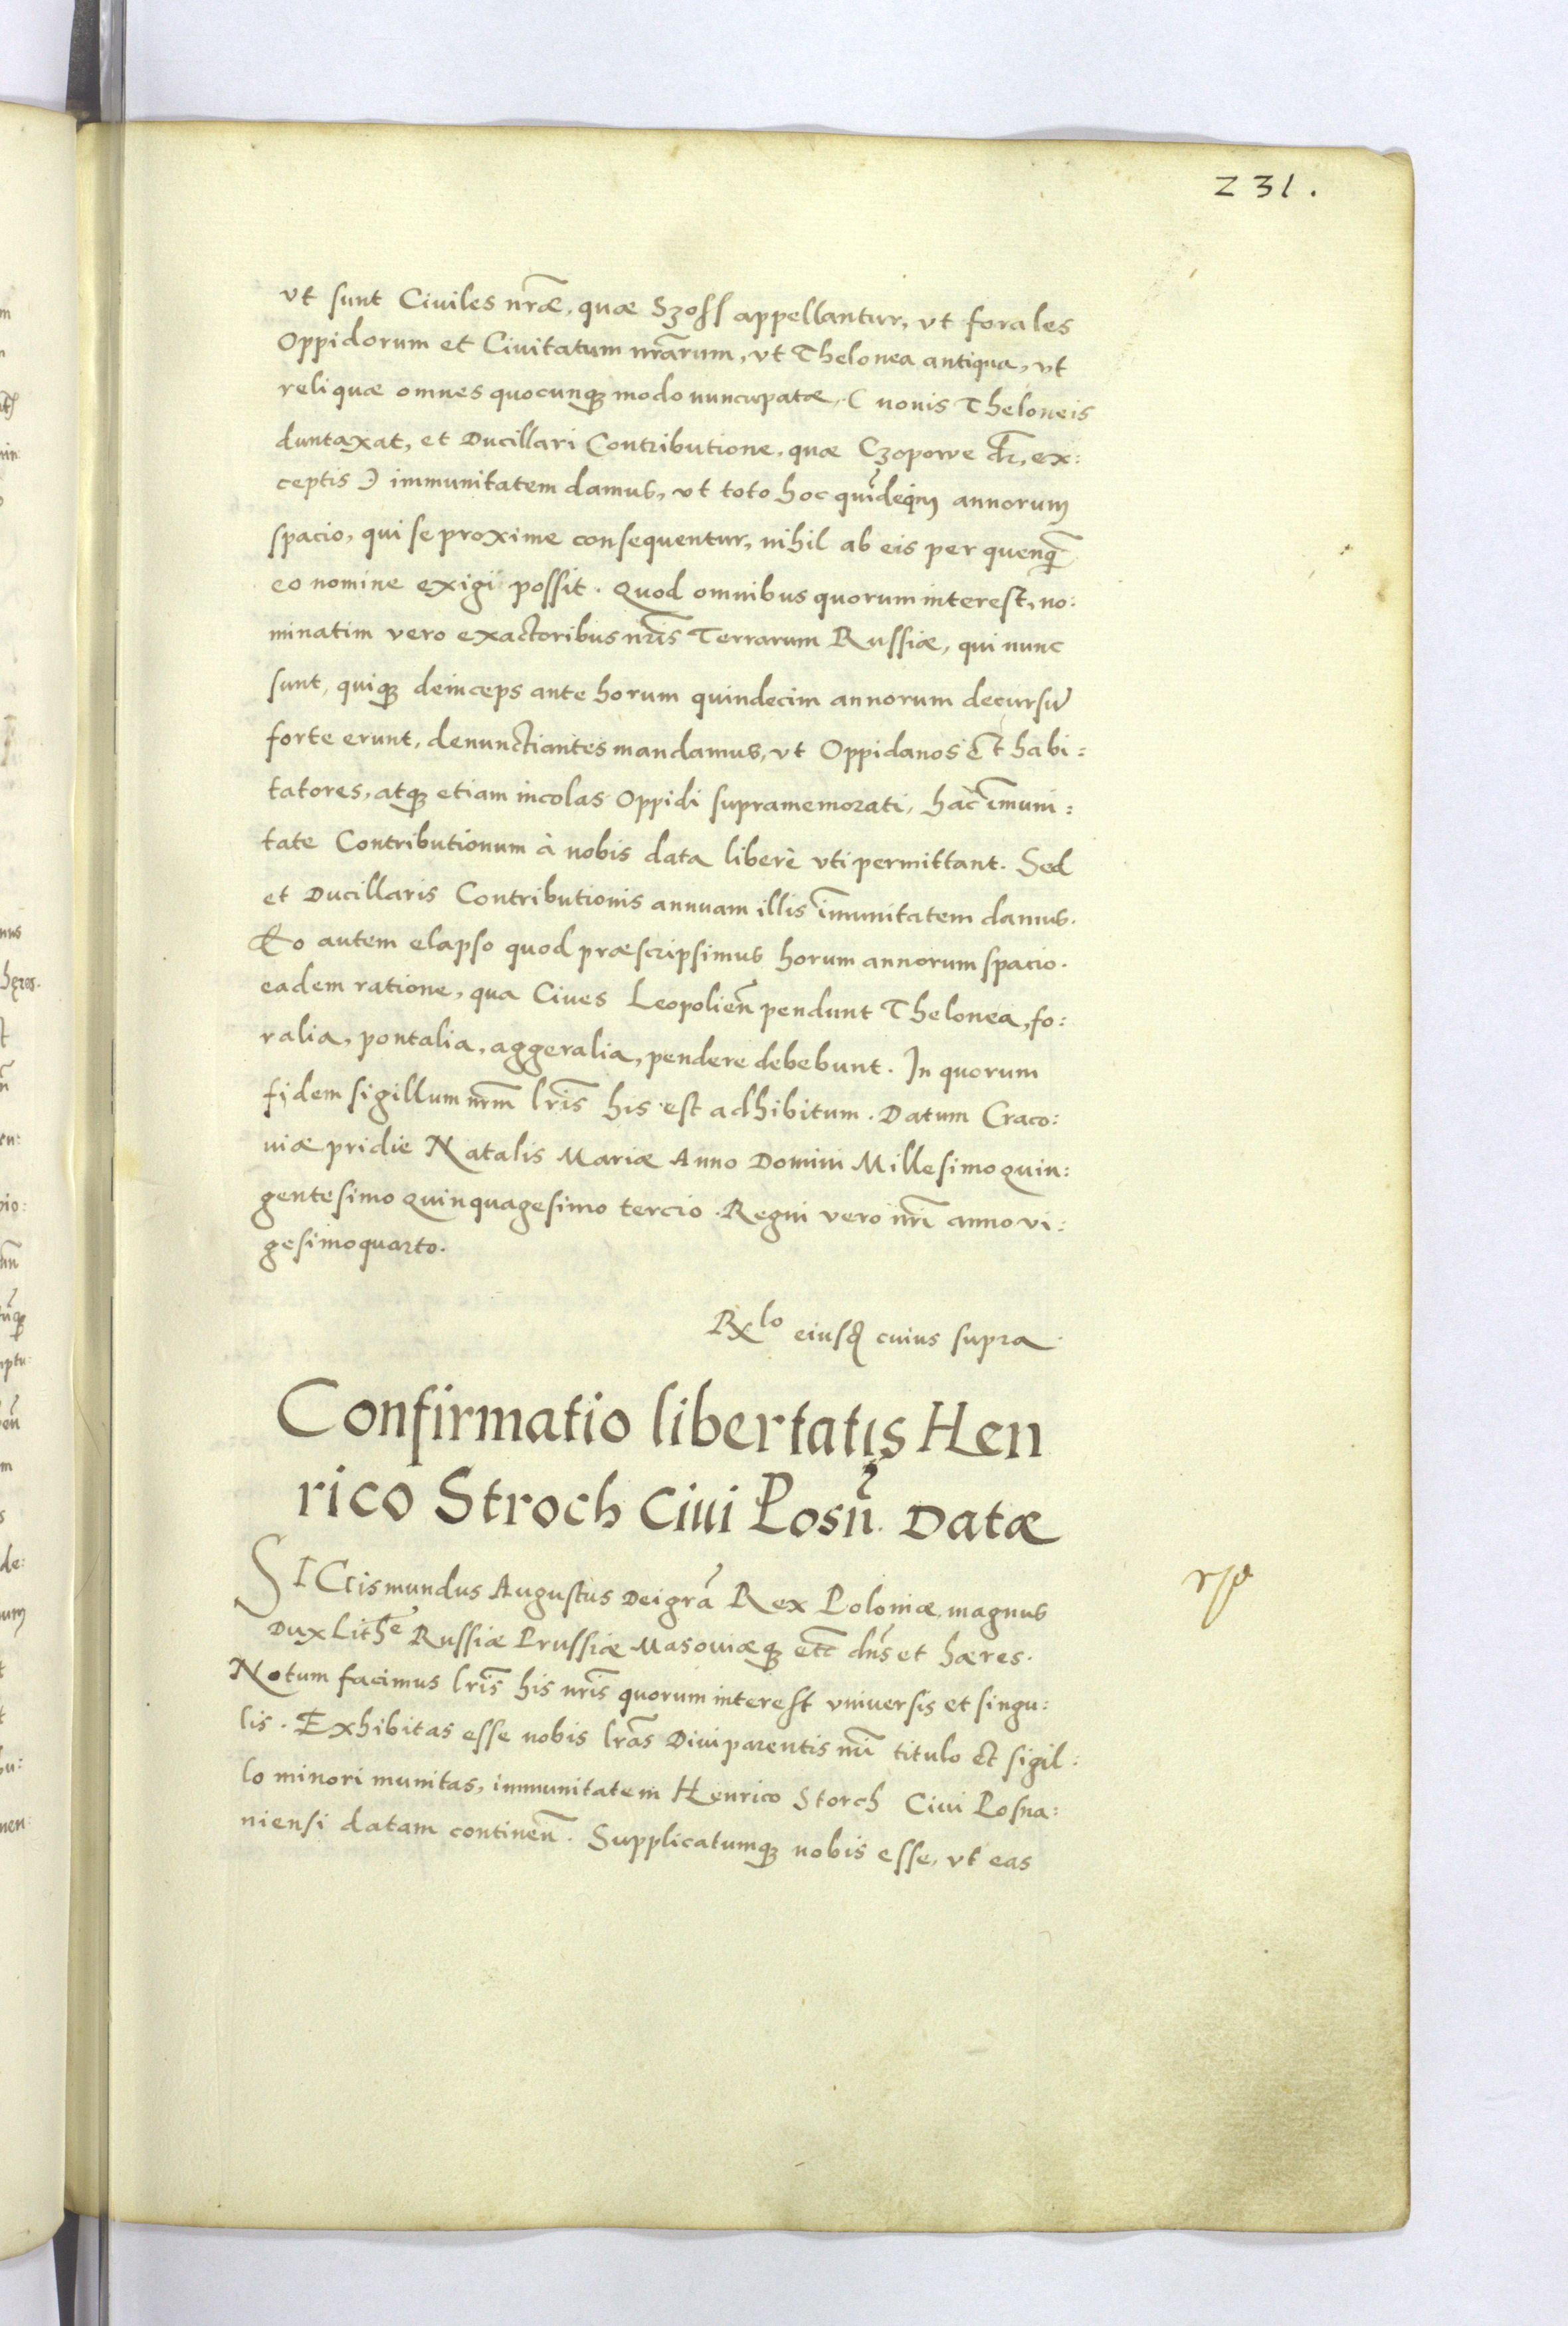 231.
vt sunt Ciuiles nr̃æ, quæ Szoss appellantur, vt forales
Oppidorum et Ciuitatum nrãrum, vt Thelonea antiqua, vt
reliquæ omnes quocunq; modo nuncupatæ, ( nouis Theloneis
duntaxat, et Ducillari Contributione, quæ Czopowe dr̃, ex:
ceptis ) immunitatem damus, vt toto hoc quĩdecim annorum
spacio, qui se proxime consequentur, nihil ab eis per quenq̃
eo nomine exigi possit. Quod omnibus quorum interest, no:
minatim vero exactoribus nr̃is Terrarum Russiæ, qui nunc
sunt, quiq; deinceps ante horum quindecim annorum decursũ
forte erunt, denunctiantes mandamus, vt Oppidanos et habi:
tatores, atq; etiam incolas Oppidi supramemorati, hac ĩmuni:
tate Contributionum à nobis data liberè vti permittant. Sed
et Ducillaris Contributionis annuam illis ĩmunitatem damus.
Eo autem elapso quod præscripsimus horum annorum spacio.
eadem ratione, qua Ciues Leopolieñ pendunt Thelonea, fo:
ralia, pontalia, aggeralia, pendere debebunt. In quorum
fidem sigillum nr̃m lr̃is his est adhibitum. Datum Craco:
uiæ pridie Natalis Mariæ Anno Domini Millesimo quin:
gentesimo Quinquagesimo tercio. Regni vero nr̃i anno vi:
gesimoquarto.
Rx lo eiusd̃ cuius supra
Confirmatio libertatis Hen
rico Stroch Ciui Posñ. Datæ
SIGismundus Augustus Dei grã Rex Poloniæ, magnus
Dux Lithᵉ Russiæ Prussiæ Masouiæq; etc̃ dñs et hæres.
Notum facimus lr̃is his nr̃is quorum interest vniuersis et singu:
lis. Exhibitas esse nobis lrãs Diui parentis nr̃i titulo et sigil:
lo minori munitas, immunitatem Henrico Storch Ciui Posna:
niensi datam contineñ. Supplicatumq; nobis esse, vt eas